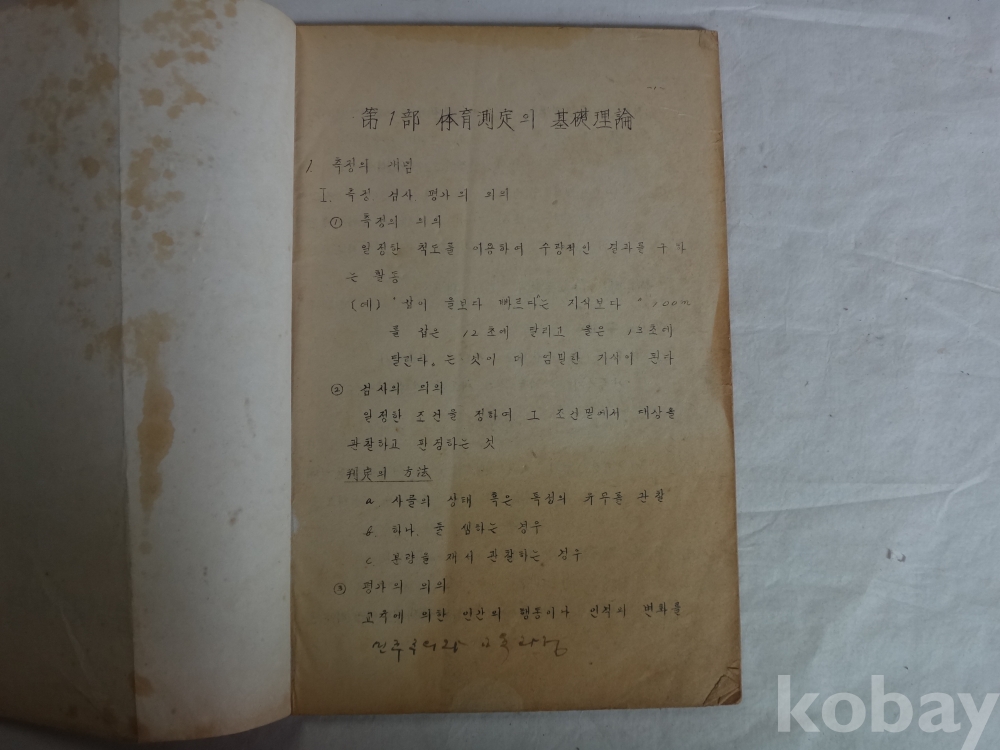 -1-
第1部 体育測定의 基礎理論
1. 측정의 개념
I. 측정 검사. 평가의 의의
① 측정의 의의
일정한 척도를 이용하여 수량적인 결과를 구하
는 활동
(예) "갑이 을보다 빠르다"는 지식보다 "100m
를 갑은 12초에 달리고 을은 13초에
달린다. 는 것이 더 엄밀한 지식이 된다
② 검사의 의의
일정한 조건을 정하여 그 조건밑에서 대상을
관찰하고 판정하는 것
判定의 方法
a 사물의 상태 혹은 특성의 유무를 관찰
b. 하나. 둘 셈하는 경우
c 분량을 재서 관찰하는 경우
③ 평가의 의의
교육에 의한 인간의 행동이나 인격의 변화를
민주주의와 교육
kobay